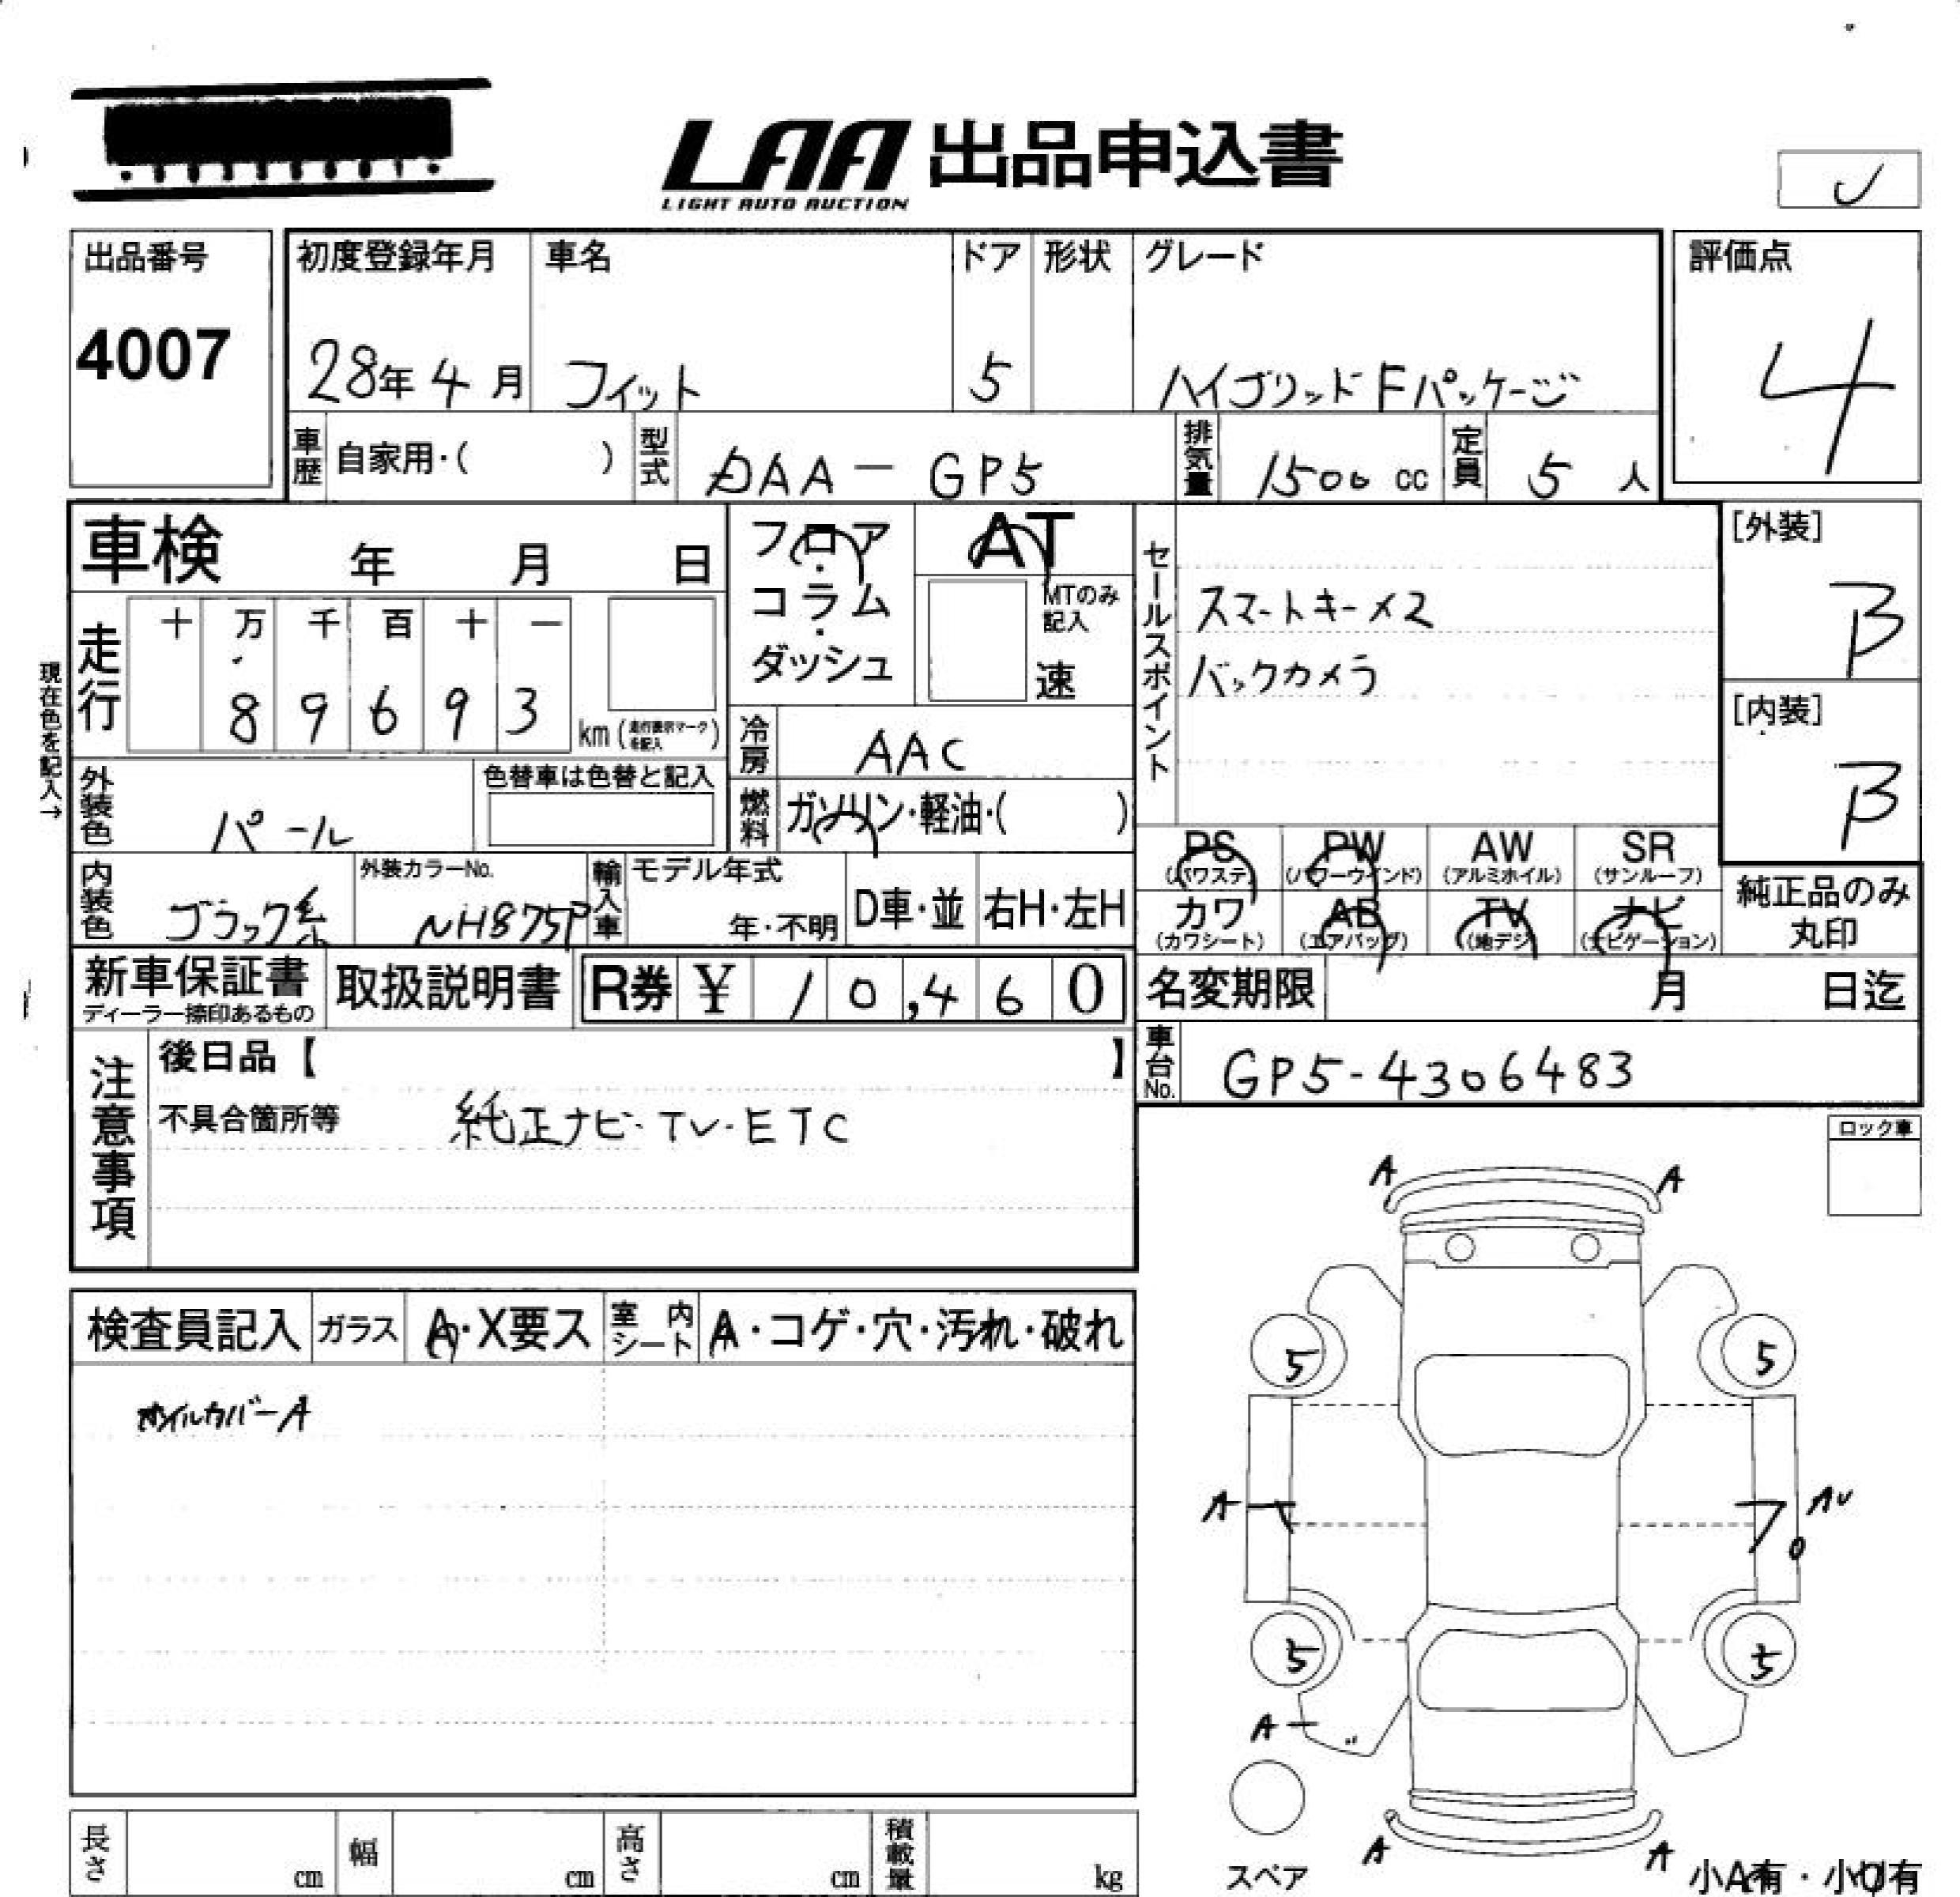 LAA 出品申込書
LIGHT AUTO AUCTION
出品番号
4007
初度登録年月
28年 4月
車名
フィット
ドア
5
形状
グレード
ハイブリッドFパッケージ
評価点
4
車歴
自家用・( )
型式
DAA-GP5
排気量
1500 cc
定員
5 人
車検 年 月 日
フロア・コラム・ダッシュ
AT
MTのみ記入
速
セールスポイント
スマートキー×2
バックカメラ
[外装]
B
[内装]
B
走行
十 万 千 百 十 一
8 9 6 9 3
km (走行表示マークを記入)
現在色を記入→
冷房
AAC
外装色
パール
色替車は色替と記入
燃料
ガソリン・軽油・( )
PS
(パワステ)
PW
(パワーウインド)
AW
(アルミホイル)
SR
(サンルーフ)
カワ
(カワシート)
AB
(エアバッグ)
TV
(地デジ)
ナビ
(ナビゲーション)
純正品のみ
丸印
内装色
ブラック系
外装カラーNo.
NH875P
輸入車
モデル年式
年・不明
D車・並
右H・左H
新車保証書
ディーラー捺印あるもの
取扱説明書
R券 ¥ 10,460
名変期限 月 日迄
車台No.
GP5-4306483
注意事項
後日品【 】
不具合箇所等
純正ナビ・TV・ETC
ロック車
検査員記入
ガラス
A・X要ス
室内シート
A・コゲ・穴・汚れ・破れ
A A
5 5
A AU
5 5
A
スペア
A A
小A有・小U有
長さ cm
幅 cm
高さ cm
積載量 kg